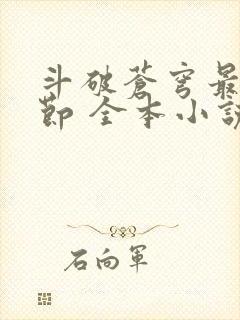 斗破蒼穹最
節 全本小說
石向軍